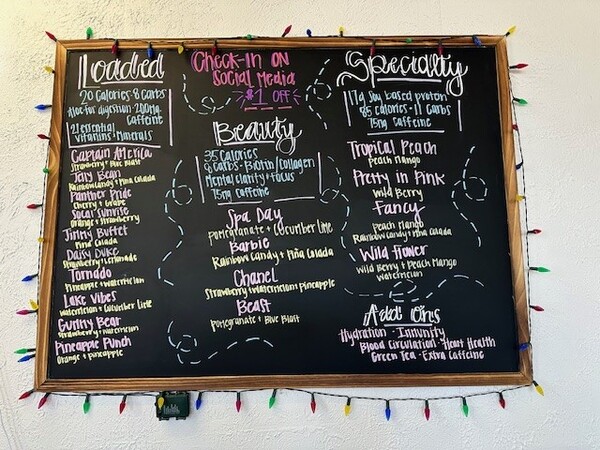 Loaded
20 Calories·8 Carbs
Aloe for digestion·200mg
Caffeine
21 essential
vitamins & minerals
Captain America
Strawberry + Blue Blast
Jelly Bean
Rainbow Candy + Piña Colada
Panther Pride
Cherry + Grape
Social Sunrise
Orange + Strawberry
Jimmy Buffet
Piña Colada
Daisy Duke
Strawberry + Lemonade
Tornado
Pineapple + Watermelon
Lake Vibes
Watermelon + Cucumber Lime
Gummy Bear
Strawberry + Watermelon
Pineapple Punch
Orange + Pineapple
Check-in on
Social Media
$1 off
Beauty
35 Calories
Carbs·Biotin/Collagen
Mental clarity + focus
75mg caffeine
Spa Day
Pomegranate + Cucumber Lime
Barbie
Rainbow Candy + Piña Colada
Chanel
Strawberry + Watermelon + Pineapple
Beast
Pomegranate + Blue Blast
Specialty
17g Soy based protein
85 calories·11 Carbs
75mg Caffeine
Tropical Peach
Peach Mango
Pretty in Pink
Wild Berry
Fancy
Peach Mango
Rainbow Candy + Piña Colada
Wild Flower
Wild Berry + Peach Mango
Watermelon
Add Ons
Hydration · Immunity
Blood Circulation · Heart Health
Green Tea · Extra Caffeine